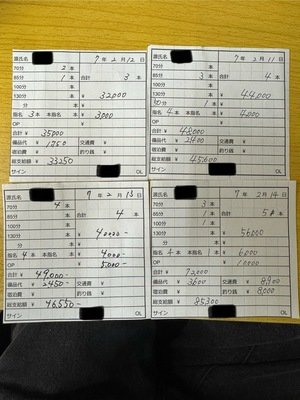 源氏名 7年2月12日
70分 2本
85分 1本 合計 3本
100分 本
130分 本 ¥ 32,000
分 本 ¥
指名 3本 本指名 本 ¥ 3,000
OP ¥
合計 ¥ 35000
備品代 ¥ 1750 交通費 ¥
宿泊費 ¥ 釣り銭 ¥
総支給額 ¥ 33250
サイン OL
源氏名 7年2月11日
70分 3本
85分 本 合計 4本
100分 本
130分 本 ¥ 44,000
30分 1本 ¥
指名 4本 本指名 本 ¥ 4,000
OP ¥
合計 ¥ 48000
備品代 ¥ 2400 交通費 ¥
宿泊費 ¥ 釣り銭 ¥
総支給額 ¥ 45600
サイン OL
源氏名 7年2月13日
70分 4本
85分 本 合計 4本
100分 本
130分 本 ¥ 40000-
分 本 ¥
指名 4本 本指名 本 ¥ 4000-
OP ¥ 5,000-
合計 ¥ 49,000-
備品代 ¥ 2450- 交通費 ¥
宿泊費 ¥ 釣り銭 ¥
総支給額 ¥ 46,550-
サイン OL
源氏名 7年2月14日
70分 3本
85分 1本 合計 5本
100分 1本
130分 本 ¥ 56000
分 本 ¥
指名 4本 本指名 1本 ¥ 6,000
OP ¥ 10000
合計 ¥ 72,000
備品代 ¥ 3600 交通費 ¥ 8,900
宿泊費 ¥ 釣り銭 ¥ 8,000
総支給額 ¥ 85,300
サイン OL